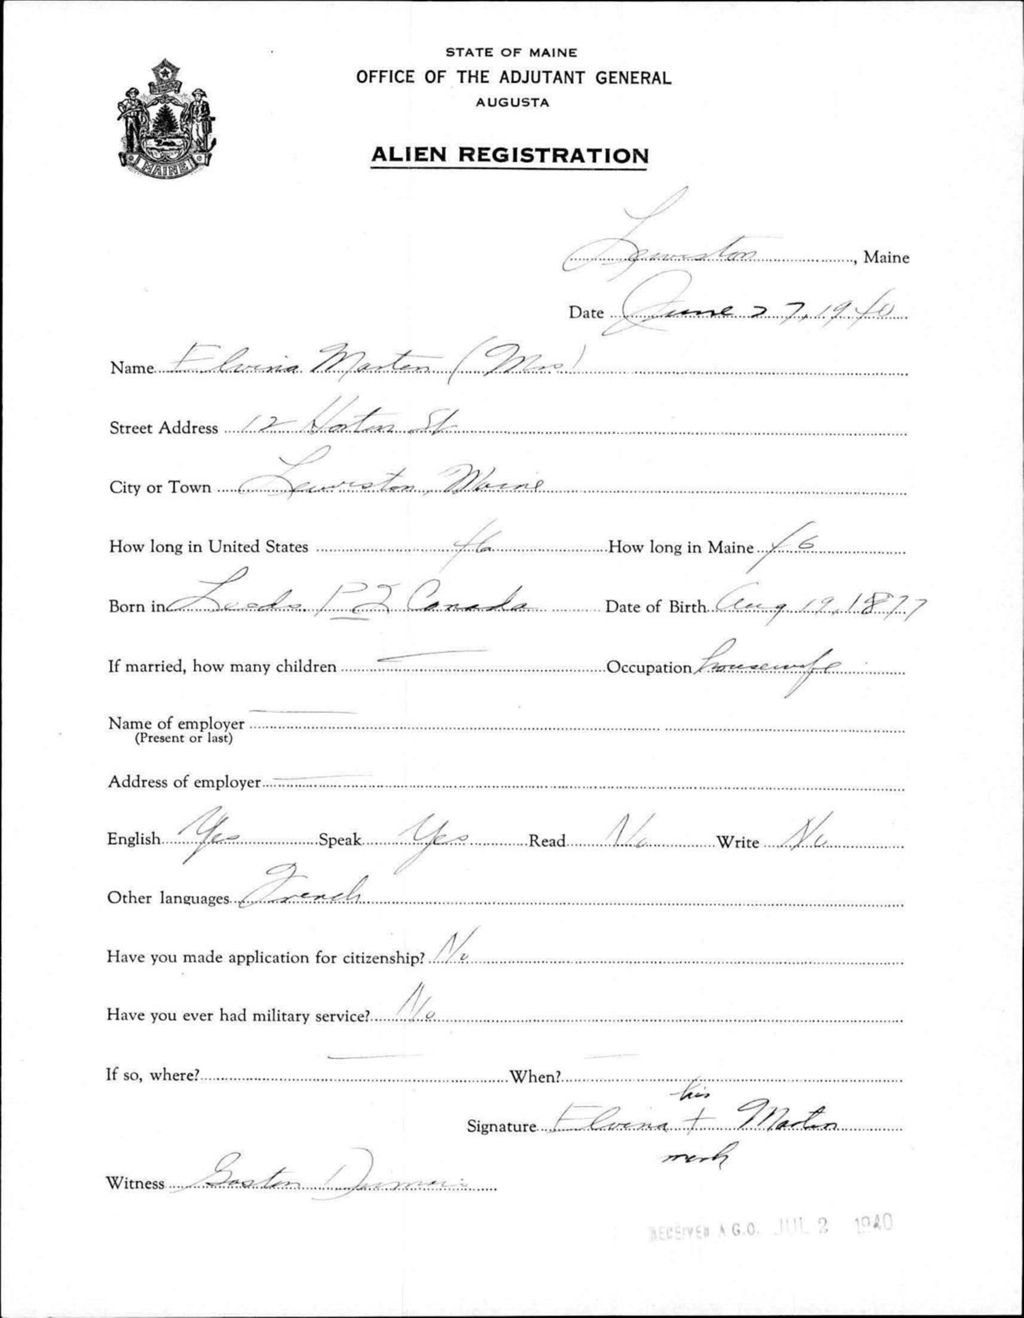 STATE OF MAINE
OFFICE OF THE ADJUTANT GENERAL
AUGUSTA
ALIEN REGISTRATION
MAINE
Lewiston, Maine
Date June 27, 1940
Name Elvina Marten (Mrs)
Street Address 12 Horton St
City or Town Lewiston, Maine
How long in United States 46 How long in Maine 46
Born in Leeds PQ Canada Date of Birth Aug 19, 1877
If married, how many children — Occupation housewife
Name of employer —
(Present or last)
Address of employer —
English Yes Speak Yes Read No Write No
Other languages French
Have you made application for citizenship? No
Have you ever had military service? No
If so, where? — When? —
his
Signature Elvina + Martin
mark
Witness Gaston
RECEIVED A.G.O. JUL 2 1940